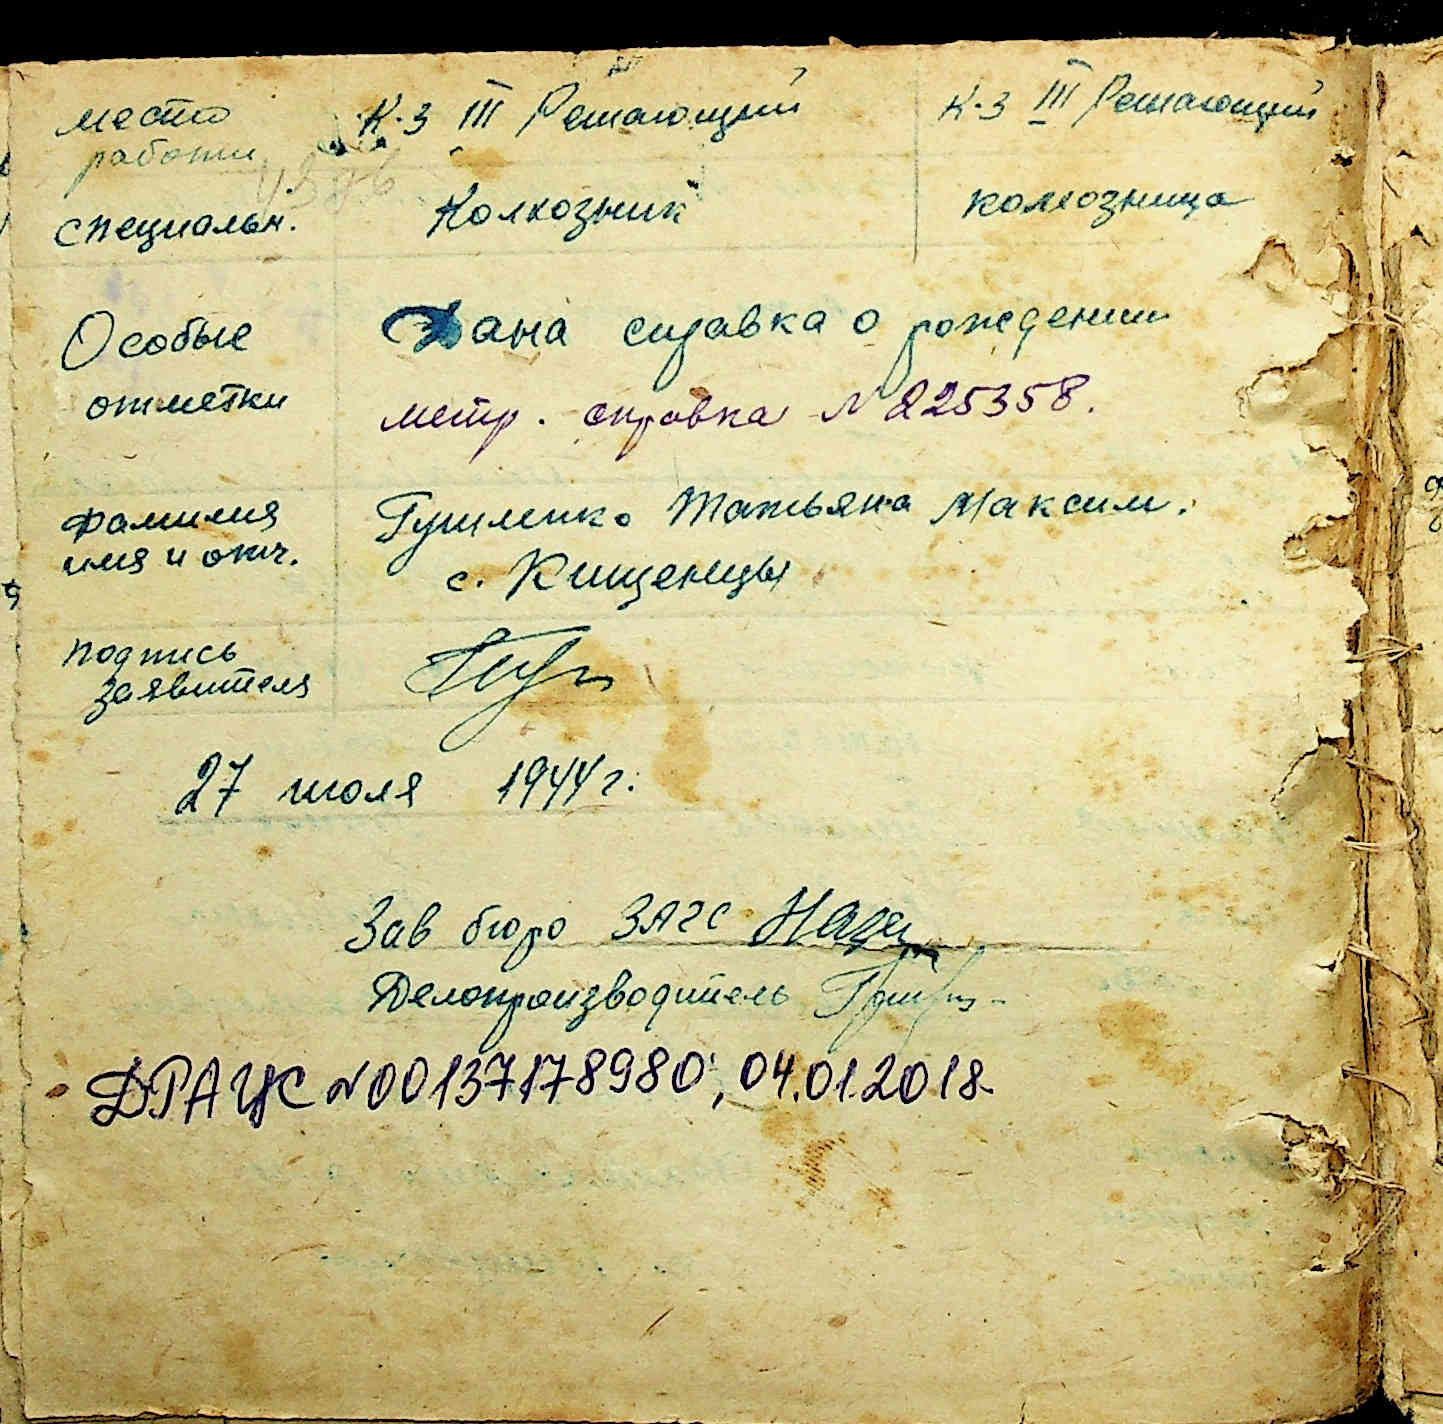 место К-з III Решающий К-з III Решающий
работы
специальн. Колхозник колхозница
Особые Дана справка о рождении
отметки метр. справка N 225358.
фамилия Татьяна Максим.
имя и отч. с. Кищенцы
подпись
заявителя
27 июля 1944 г.
Зав бюро ЗАГС
Делопроизводитель
ДРАЦС N00137178980, 04.01.2018